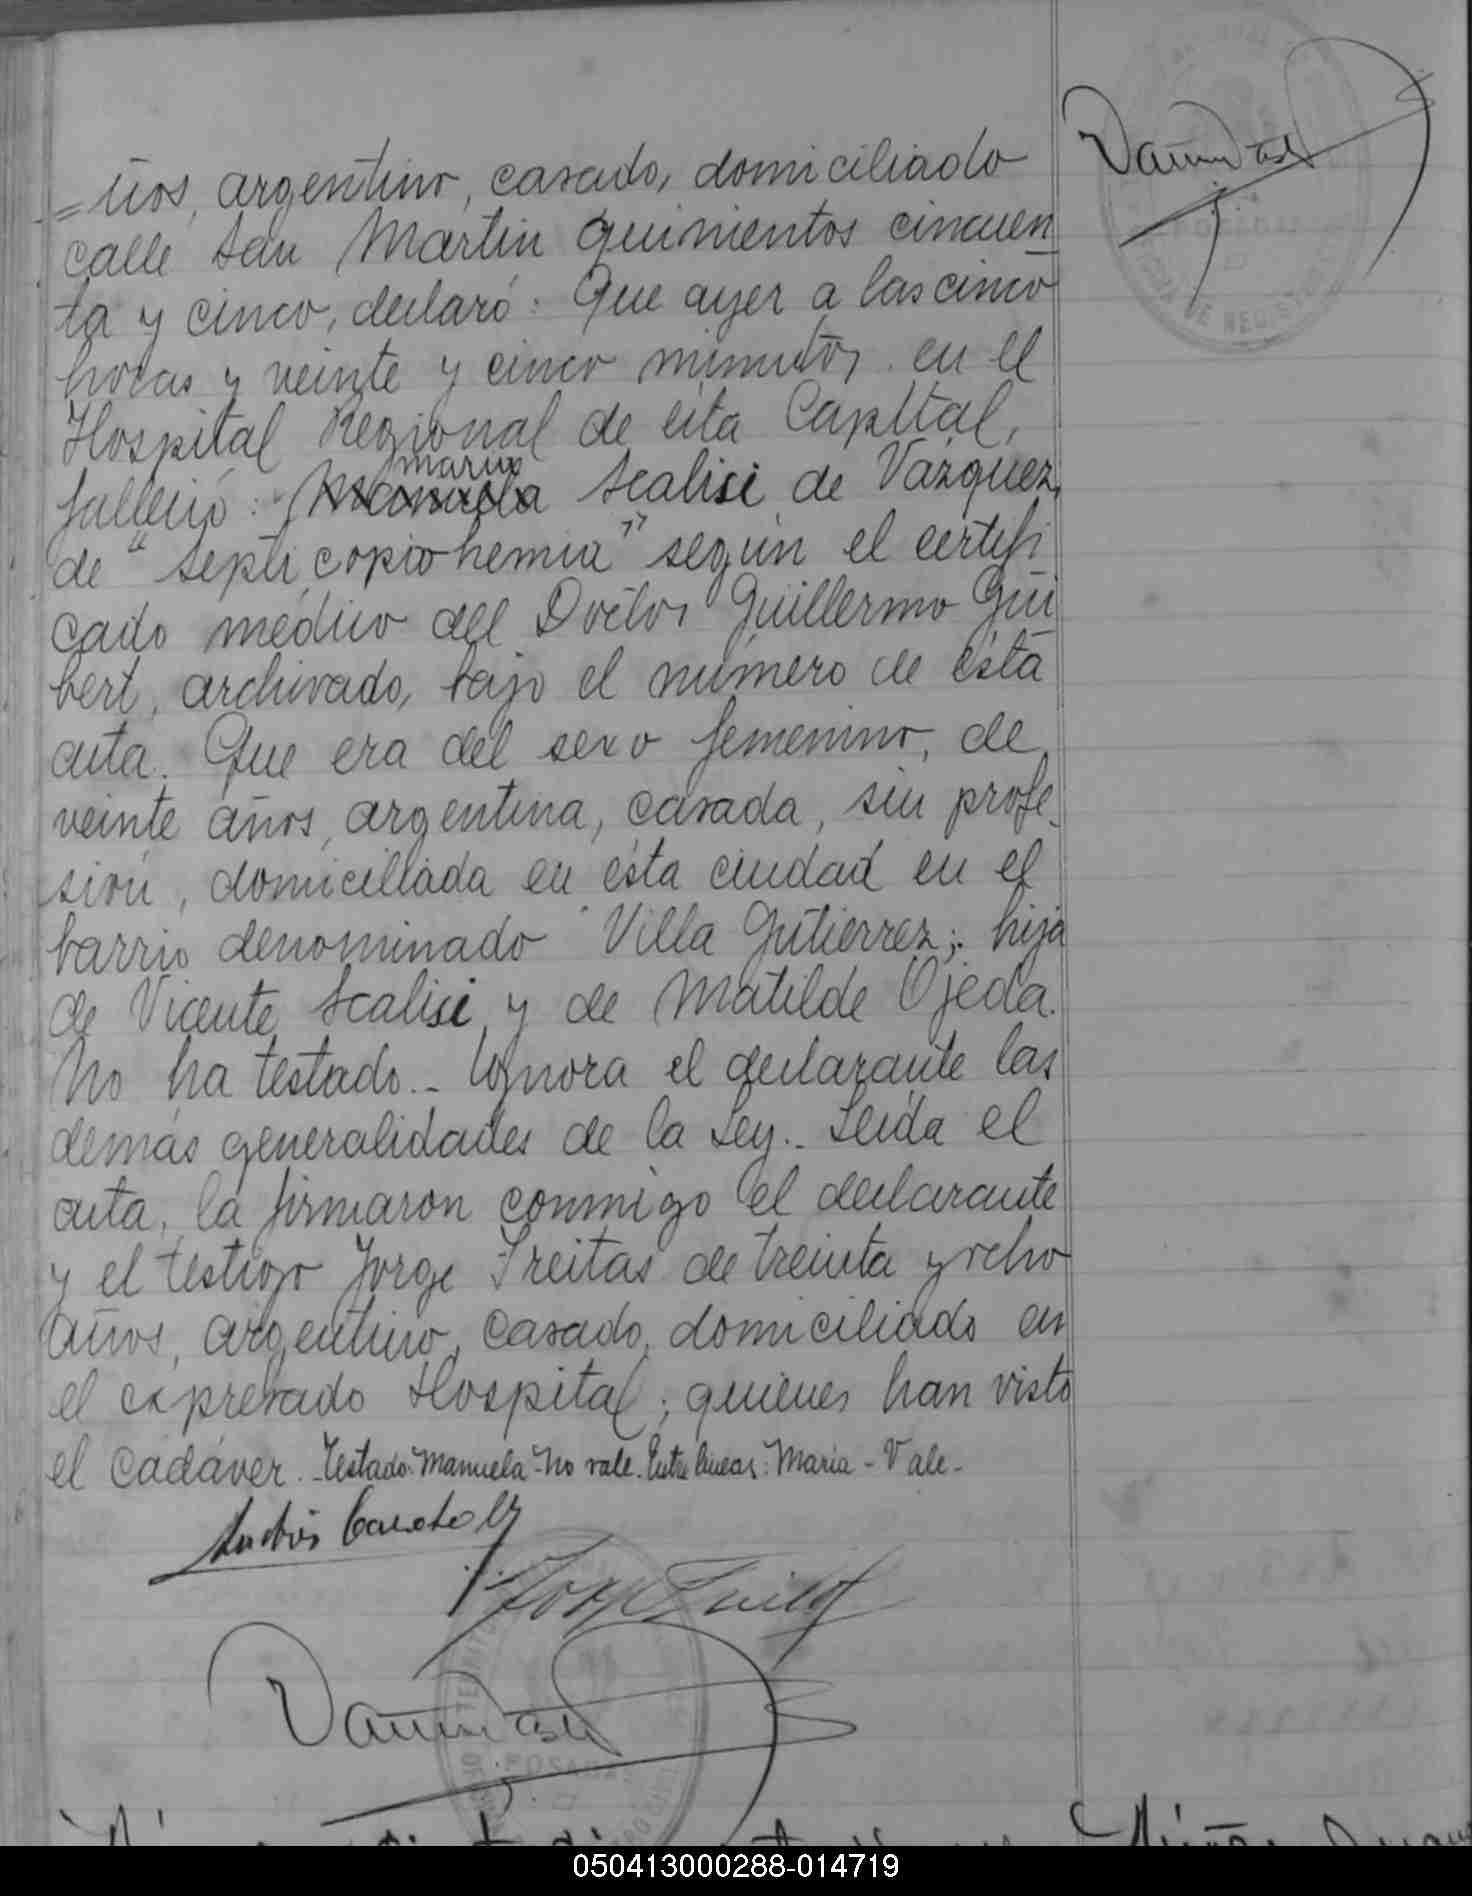 =ños, argentino, casado, domiciliado
calle San Martin quinientos cincuen
ta y cinco, declaró: Que ayer a las cinco
horas y veinte y cinco minutos, en el
Hospital Regional de esta Capital,
Maria
falleció: Manuela Scalisi de Vázquez,
de "septicopiohemia" según el certifi
cado médico del Doctor Guillermo Gui
bert, archivado, bajo el número de ésta
acta. Que era del sexo femenino, de
veinte años, argentina, casada, sin profe_
sión, domiciliada en ésta ciudad en el
barrio denominado Villa Gutierrez; hija
de Vicente Scalisi y de Matilde Ojeda.
No ha testado._ Ignora el declarante las
demás generalidades de la Ley._ Leida el
acta, la firmaron conmigo el declarante
y el testigo Jorge Freitas de treinta y ocho
años, argentino, casado, domiciliado en
el expresado Hospital; quienes han visto
el cadáver. -Testado: Manuela-No vale. Entre lineas: Maria - Vale-
050413000288-014719